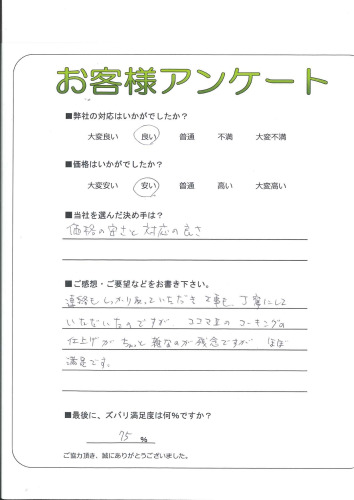 お客様アンケート
■弊社の対応はいかがでしたか？
大変良い 良い 普通 不満 大変不満
■価格はいかがでしたか？
大変安い 安い 普通 高い 大変高い
■当社を選んだ決め手は？
価格の安さと対応の良さ
■ご感想・ご要望などをお書き下さい。
連絡もしっかりしていただき 工事も、丁寧にして
いただいたのですが、ココマ上のコーキングの
仕上げがちょっと雑なのが残念ですが ほぼ
満足です。
■最後に、ズバリ満足度は何％ですか？
75 ％
ご協力頂き、誠にありがとうございました。